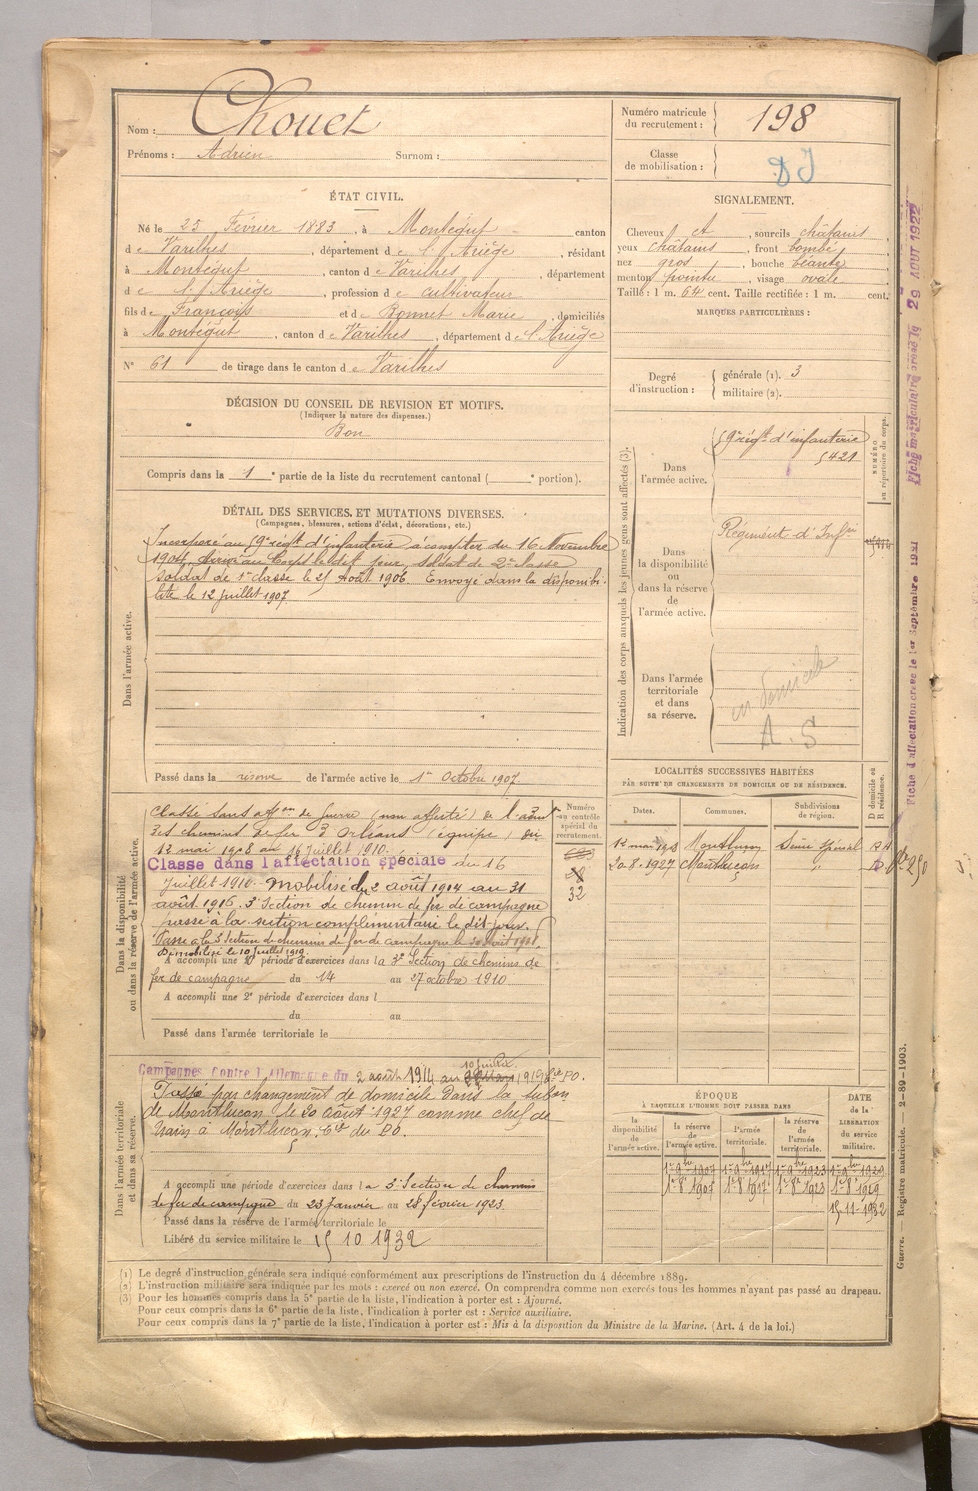 Nom : Chouet
Prénoms : Adrien Surnom :
Numéro matricule du recrutement : 198
Classe de mobilisation :
ÉTAT CIVIL.
Né le 25 Février 1883, à Montégut canton
de Varilhes, département de l'Ariège, résidant
à Montégut, canton de Varilhes, département
de l'Ariège, profession de cultivateur
fils de François et de Bonnet Marie, domiciliés
à Montégut, canton de Varilhes, département de l'Ariège
N° 61 de tirage dans le canton de Varilhes
SIGNALEMENT.
Cheveux et, sourcils châtains,
yeux châtains, front bombé,
nez gros, bouche béante,
menton pointu, visage ovale.
Taille : 1 m. 64 cent. Taille rectifiée : 1 m. cent.
MARQUES PARTICULIÈRES :
Degré d'instruction : générale (1). 3
militaire (2).
DÉCISION DU CONSEIL DE REVISION ET MOTIFS.
(Indiquer la nature des dispenses.)
Bon
Compris dans la 1e partie de la liste du recrutement cantonal ( e portion).
DÉTAIL DES SERVICES ET MUTATIONS DIVERSES.
(Campagnes, blessures, actions d'éclat, décorations, etc.)
Dans l'armée active.
Incorporé au 59e régt d'infanterie à compter du 16 Novembre
1904, arrivé au Corps le dit jour, soldat de 2e classe
soldat de 1re classe le 25 Août 1906. Envoyé dans la disponibi-
lité le 12 juillet 1907.
Passé dans la réserve de l'armée active le 1er Octobre 1907
Indication des corps auxquels les jeunes gens sont affectés (3).
Dans l'armée active.
59e régt d'infanterie
5421
NUMÉRO au répertoire du corps.
Dans la disponibilité ou dans la réserve de l'armée active.
Régiment d'Infie
Dans l'armée territoriale et dans sa réserve.
A. S
LOCALITÉS SUCCESSIVES HABITÉES
PAR SUITE DE CHANGEMENTS DE DOMICILE OU DE RÉSIDENCE.
Dates. Communes. Subdivisions de région. D domicile ou R résidence.
12 mai 1908 Montluçon
20.8.1927 Montluçon D
Dans la disponibilité ou dans la réserve de l'armée active.
Numéro au contrôle spécial du recrutement.
32
Classé sans affon de guerre (non affecté) de l'adon
des chemins de fer d'Orléans (équipe) du
12 mai 1908 au 16 juillet 1910.
Classe dans l'affectation spéciale du 16
Juillet 1910. Mobilisé du 2 août 1914 au 31
août 1916. 3e Section de chemin de fer de campagne
passé à la section complémentaire le dit jour.
Passé à la 3 Section de chemins de fer de campagne le
Démobilisé le 10 juillet 1919.
A accompli une 1e période d'exercices dans la 3e Section de chemins de
fer de campagne du 14 au 27 octobre 1910
A accompli une 2e période d'exercices dans l
du au
Passé dans l'armée territoriale le
Dans l'armée territoriale et dans sa réserve.
Campagnes Contre l'Allemagne du 2 août 1914 au 10 juillet 1919 Cie PO.
Passé par changement de domicile dans la subon
de Montluçon le 20 août 1927 comme chef de
train à Montluçon. Cie du PO.
A accompli une période d'exercices dans la 3e Section de chemins
de fer de campagne du 23 Janvier au 28 février 1923.
Passé dans la réserve de l'armée territoriale le
Libéré du service militaire le 15 10 1932
ÉPOQUE
À LAQUELLE L'HOMME DOIT PASSER DANS
la disponibilité de l'armée active. la réserve de l'armée active. l'armée territoriale. la réserve de l'armée territoriale. DATE de la LIBÉRATION du service militaire.
1er 9bre 1907 1er 9bre 1917 1er 9bre 1923 1er 9bre 1929
1er 8bre 1907 1er 8bre 1917 1er 8bre 1923 1er 8bre 1929
15-11-1932
(1) Le degré d'instruction générale sera indiqué conformément aux prescriptions de l'instruction du 4 décembre 1889.
(2) L'instruction militaire sera indiquée par les mots : exercé ou non exercé. On comprendra comme non exercés tous les hommes n'ayant pas passé au drapeau.
(3) Pour les hommes compris dans la 5e partie de la liste, l'indication à porter est : Ajourné.
Pour ceux compris dans la 6e partie de la liste, l'indication à porter est : Service auxiliaire.
Pour ceux compris dans la 7e partie de la liste, l'indication à porter est : Mis à la disposition du Ministre de la Marine. (Art. 4 de la loi.)
Guerre. Registre matricule. 2-89-1903.
Fiche d'affectation créée le 1er Septembre 1921
Fiche matriculaire créée le 29 AOUT 1922